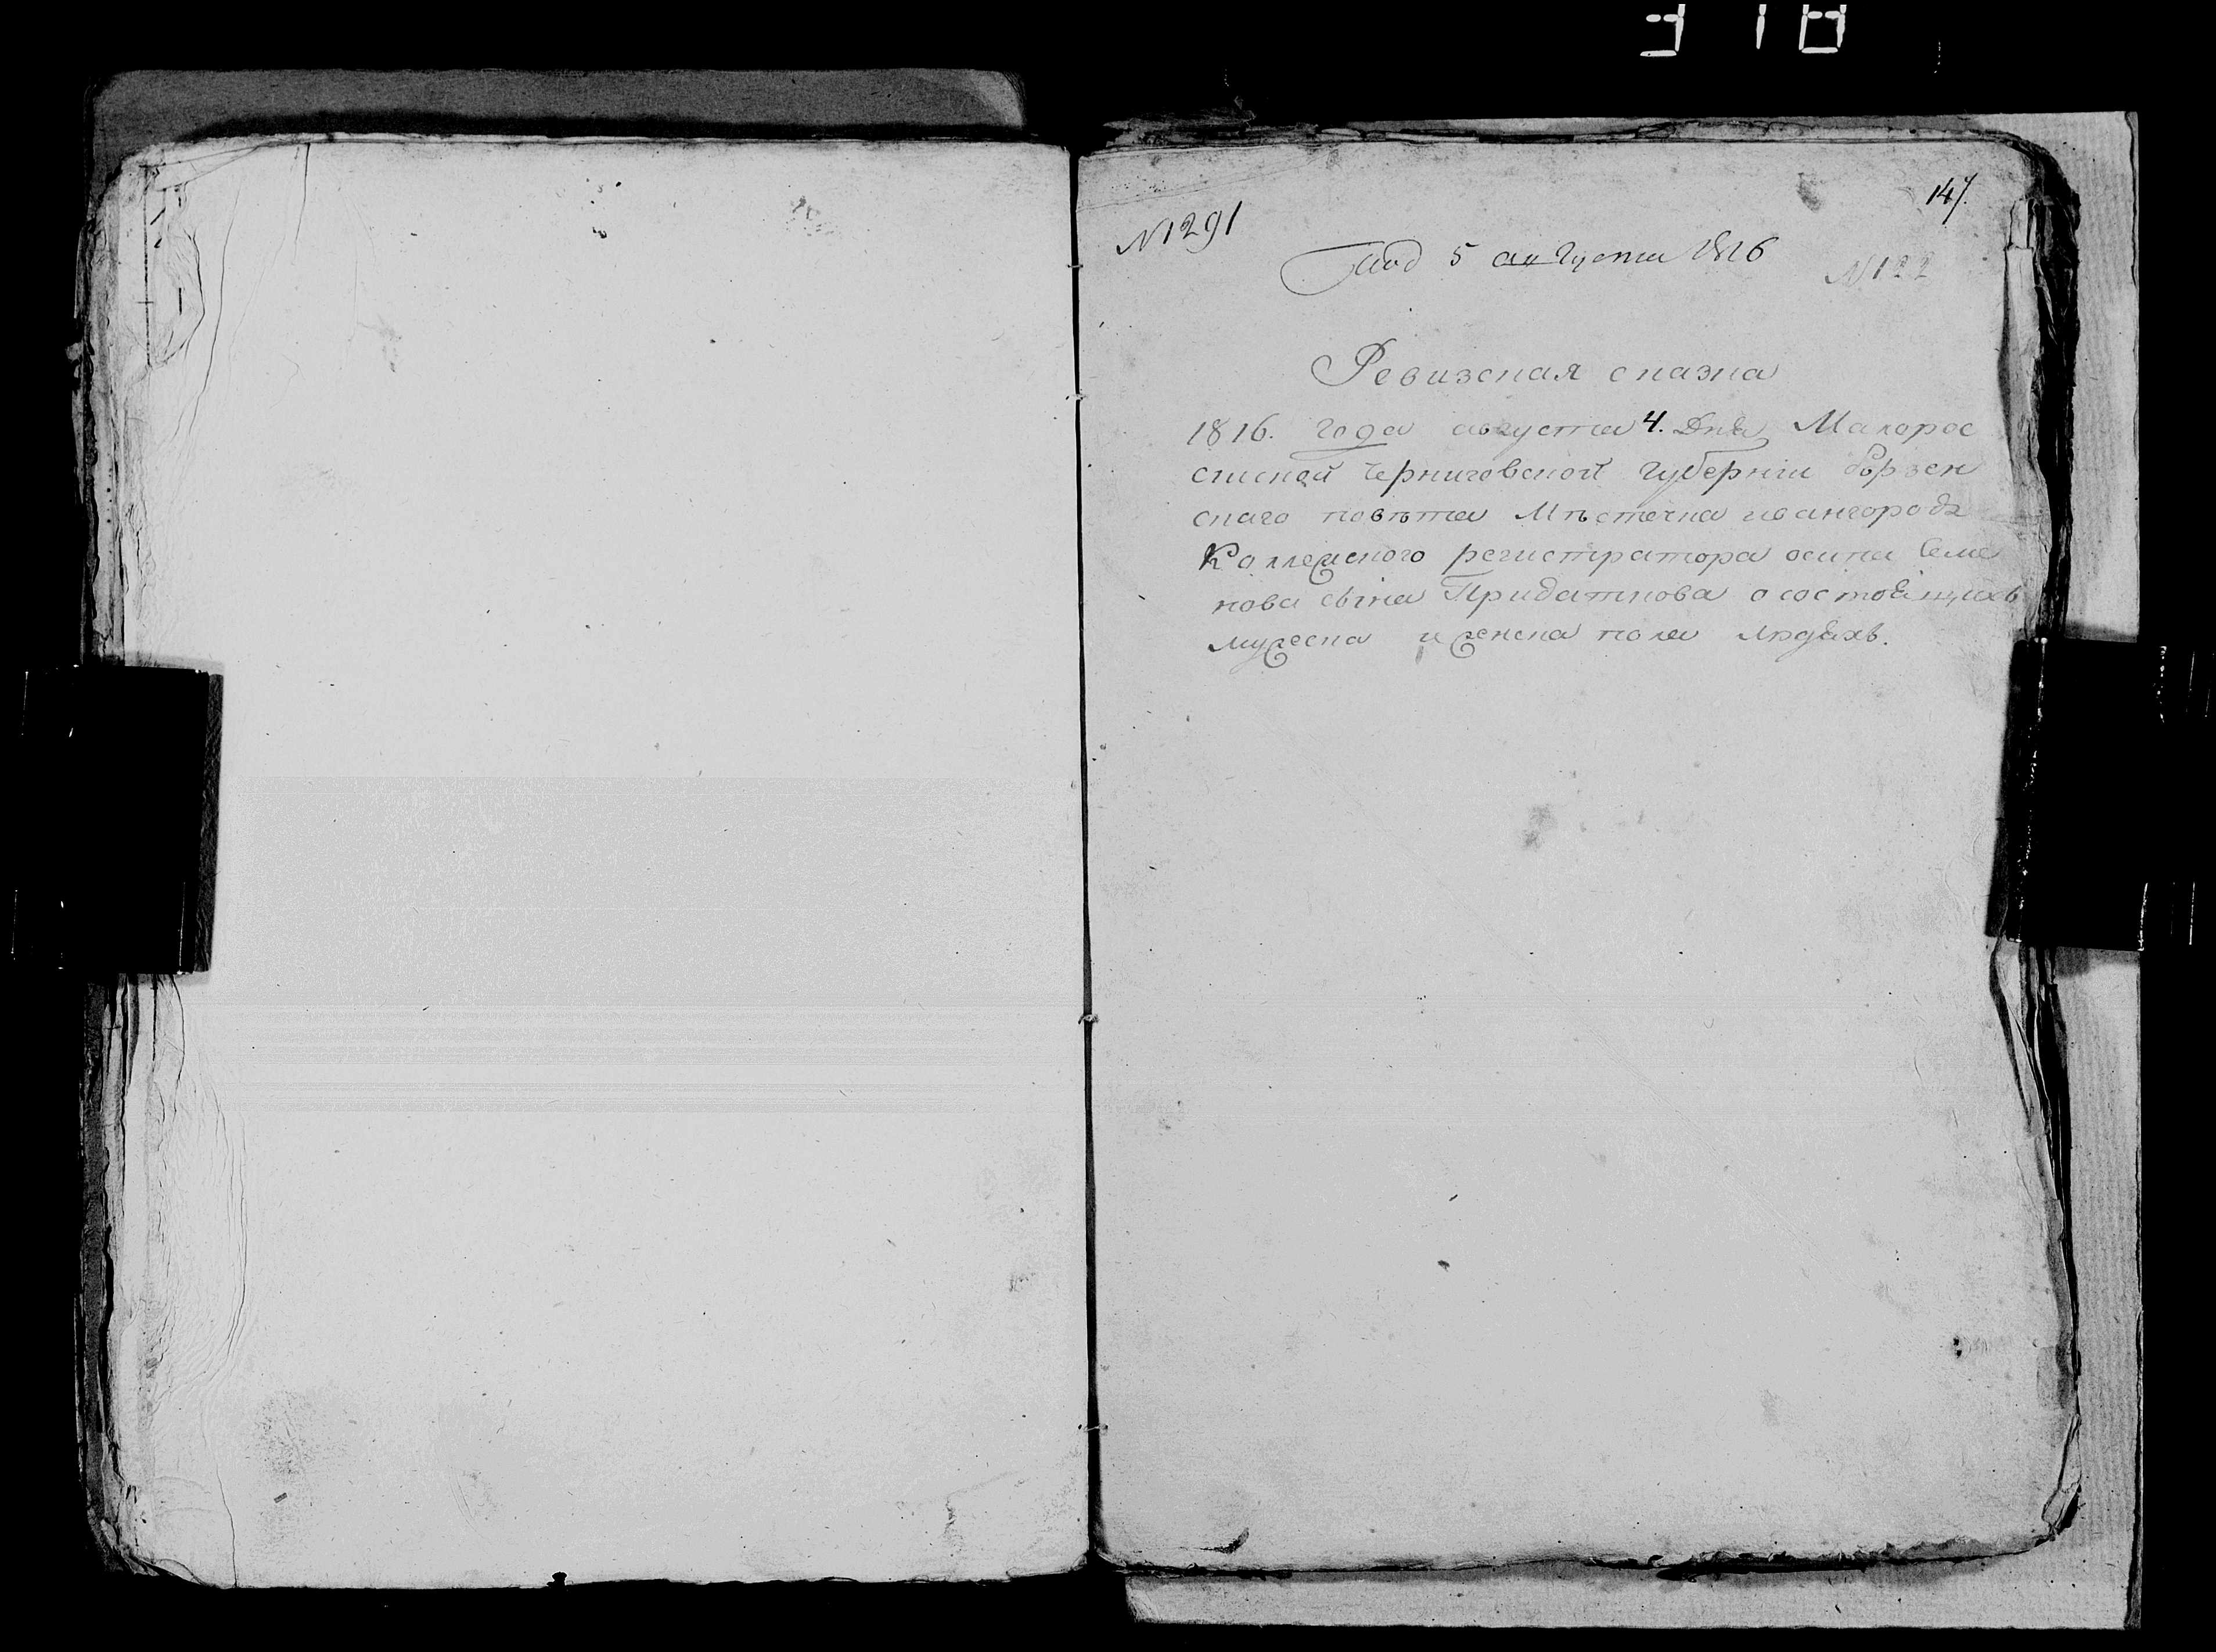 318
147.
N 1291
Под 5 августа 1816
N 122
Ревизская сказка
1816. года августа 4. дня Малорос
сийской Черниговской губернии борзен
скаго повѣта Мѣстечка ивангорода
Коллежского регистратора осипа Семе
нова сына Придаткова о состоящихъ
мужеска и женска пола людяхъ.